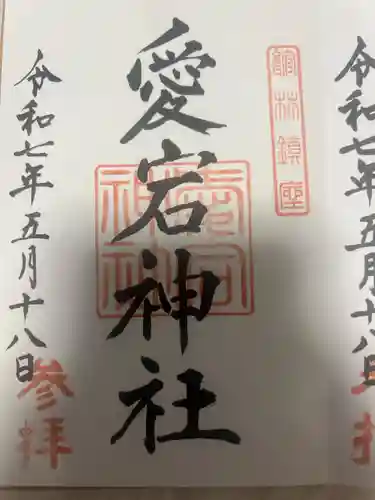 館林鎮座
愛宕神社
令和七年五月十八日
参拝
令和七年五月十八日